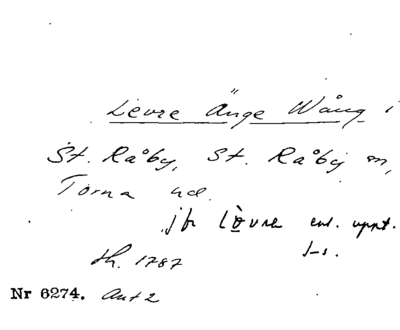 Levre Änge Wång i
St. Råby, St. Råby sn,
Torna hd.
jfr Lövre enl. uppt.
sh. 1787
Nr 6274. Akt 2